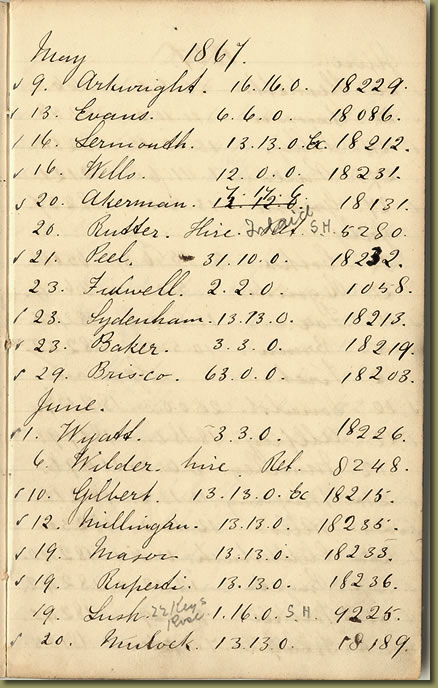 May 1867.
✓ 9. Arkwright. 16.16.0. 18229.
✓ 13. Evans. 6.6.0. 18086.
✓ 16. Sermonth. 13.13.0. Ex. 18212.
✓ 16. Wells. 12.0.0. 18231.
✓ 20. Akerman. 7.17.6 18131.
20. Rutter. Hire. Ret. S.H. 5280.
✓ 21. Peel. 31.10.0. 18232.
23. Fidwell. 2.2.0. 1058.
✓ 23. Sydenham. 13.13.0. 18213.
✓ 23. Baker. 3.3.0. 18219.
✓ 29. Brisco. 63.0.0. 18203.
June.
✓ 1. Wyatt. 3.3.0. 18226.
6. Wilder. hire Ret. 8248.
✓ 10. Gilbert. 13.13.0. Ex 18215.
✓ 12. Millingan. 13.13.0. 18235.
✓ 19. Mason 13.13.0. 18233.
✓ 19. Ruperti. 13.13.0. 18236.
19. Lush. 22 Keys Rose 1.16.0. S.H. 9225.
✓ 20. Mulock. 13.13.0. 18189.